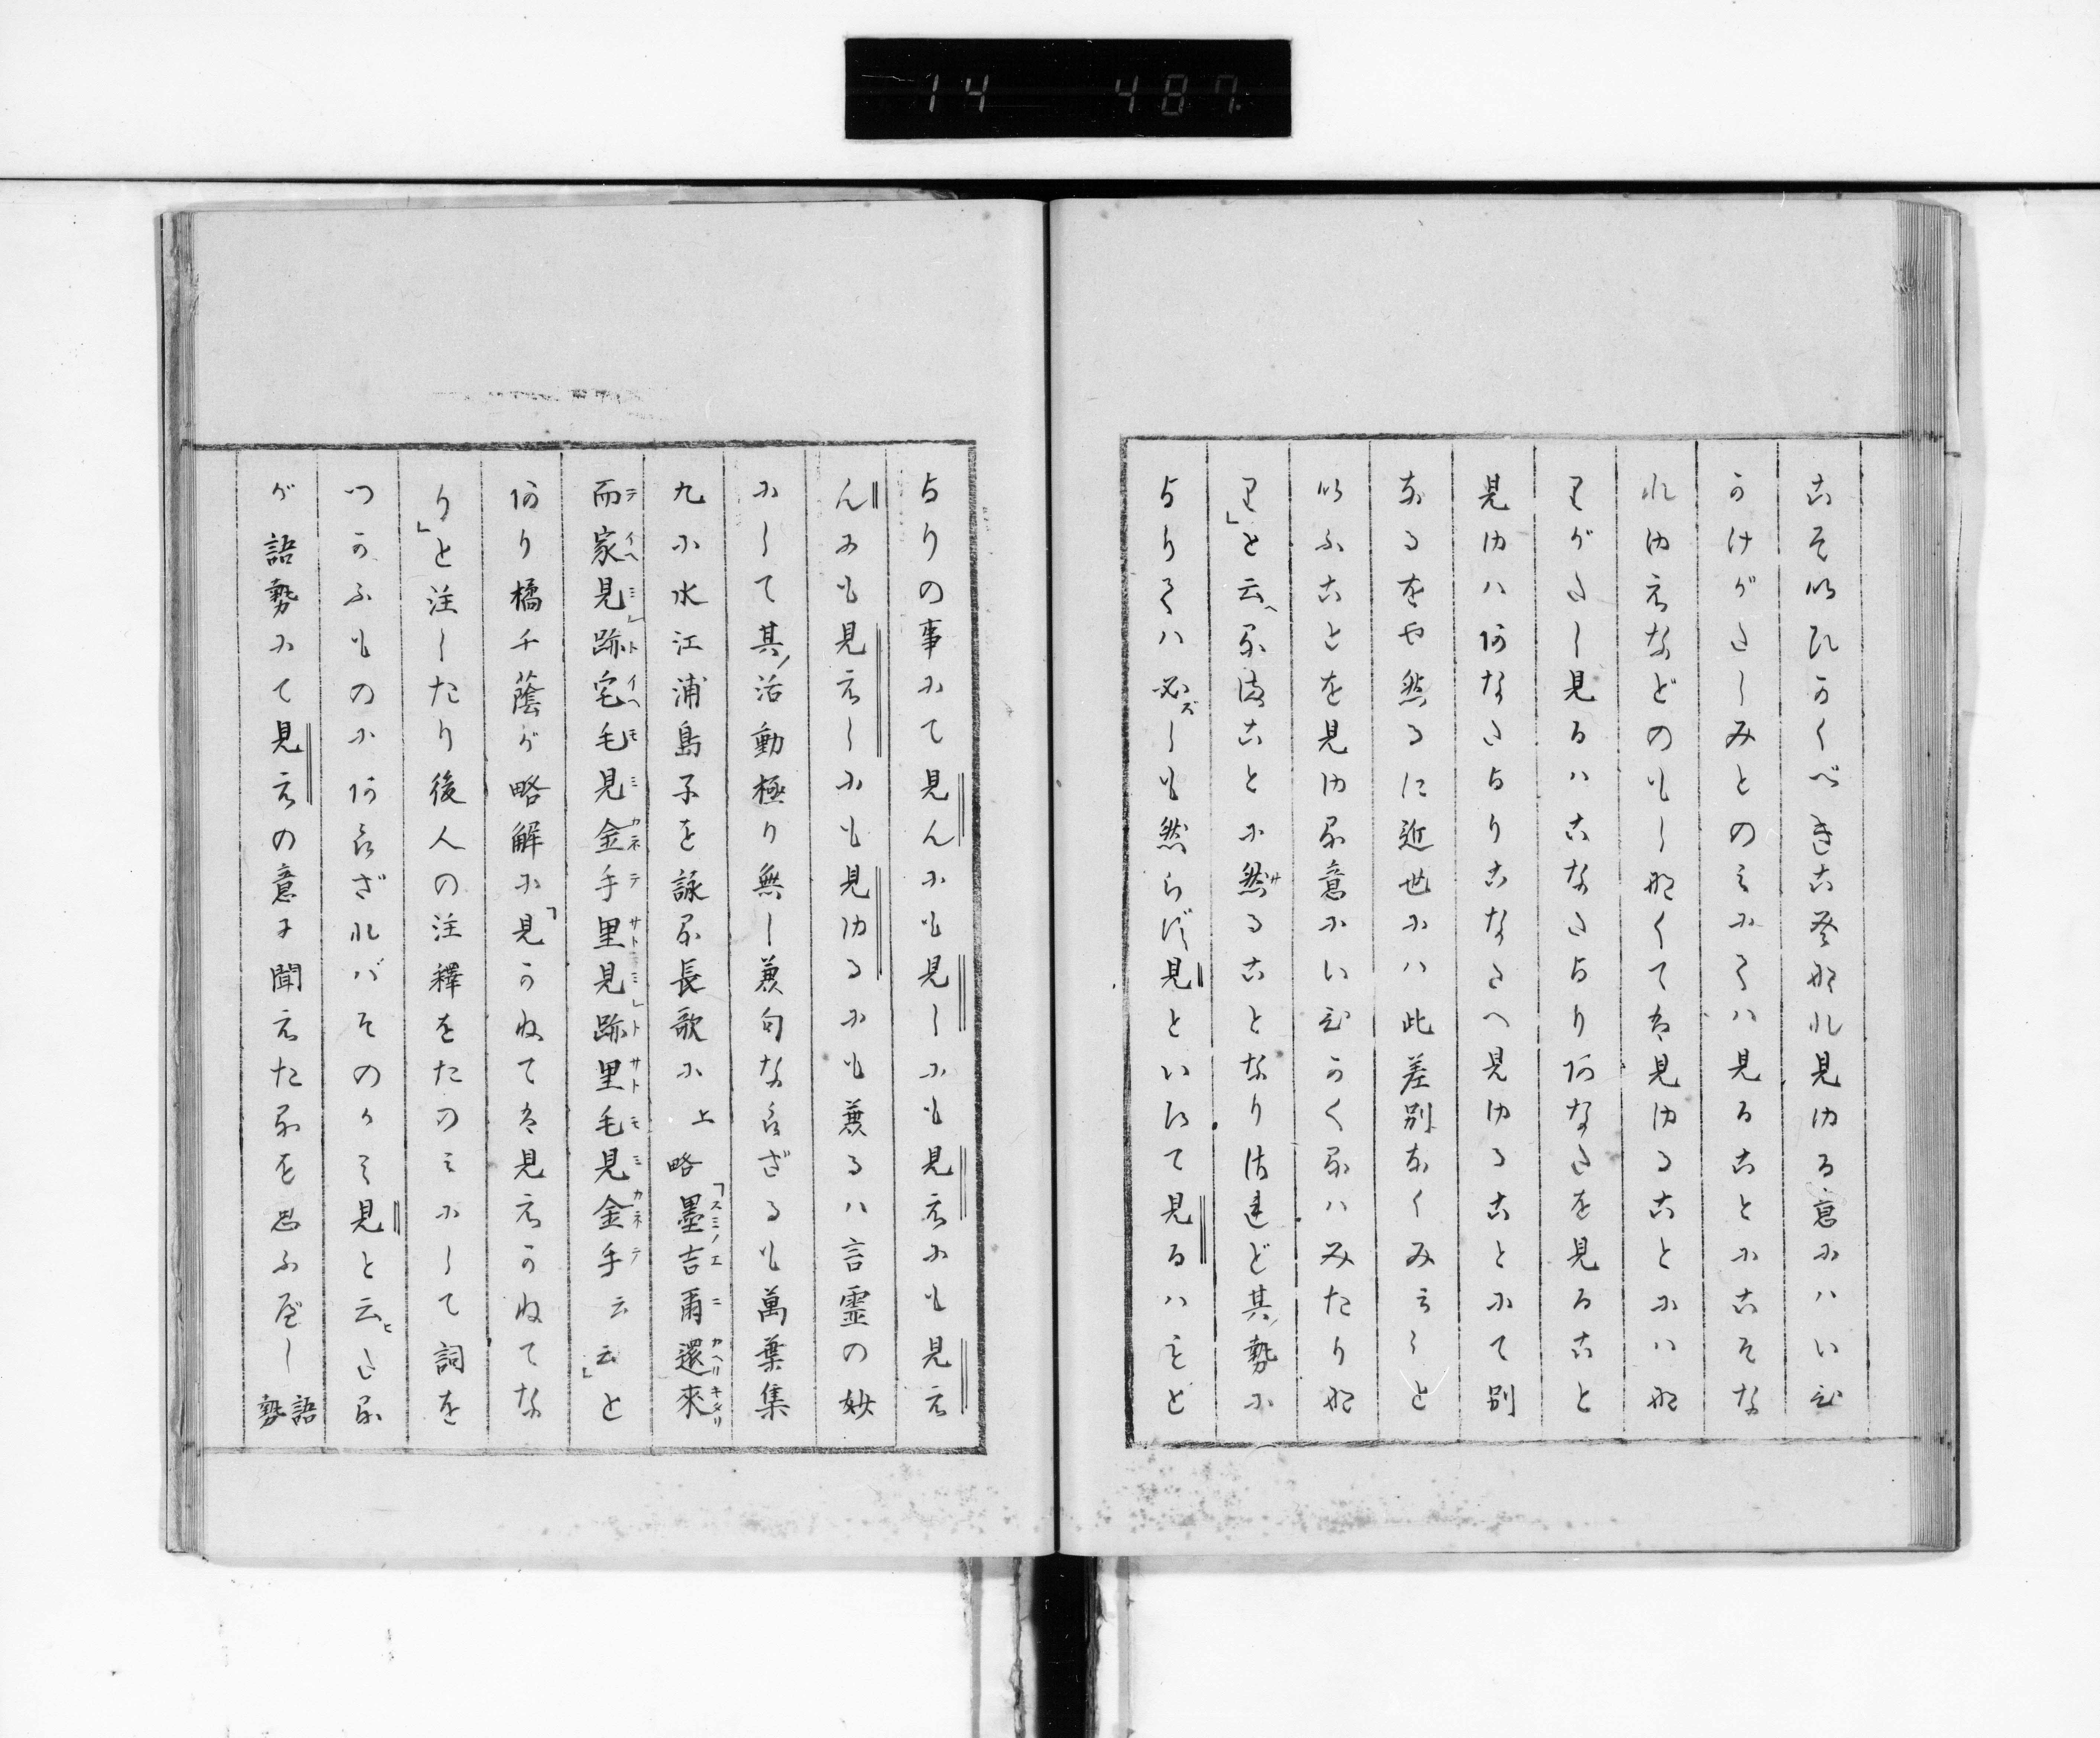 14 487
こそいひかくべきことなれ見ゆる意にハいひ
かけがたしみとのミにてハ見ることにこそな
れゆえなどのもし無くてハ見ゆることにハな
りがたし見るハこなたよりあなたを見ること
見ゆハあなたよりこなたへ見ゆることにて別
なるをや然るに近世にハ此差別なくみえしと
いふことを見ゆる意にいひかくるハみたりな
り」と云へるまことに然ることなりけれど其ノ勢に
よりてハ必ズしも然らず見といひて見るハもと
よりの事にて見んにも見しにも見えにも見え
んにも見えしにも見ゆるにも兼るハ言霊の妙
にして其ノ活動極り無し兼句ならざるも萬葉集
九に水江浦島子を詠る長歌に上略「墨吉爾還來
而家見」跡宅毛見金手里見」跡里毛見金手云云」と
あり橘千蔭が略解に「見かねてハ見えかねてな
り」と注したり後人の注釋をたのミにして詞を
つかふものにあらざればそのかミ見と云ヒたる
が語勢にて見えの意に聞えたるを思ふべし語勢